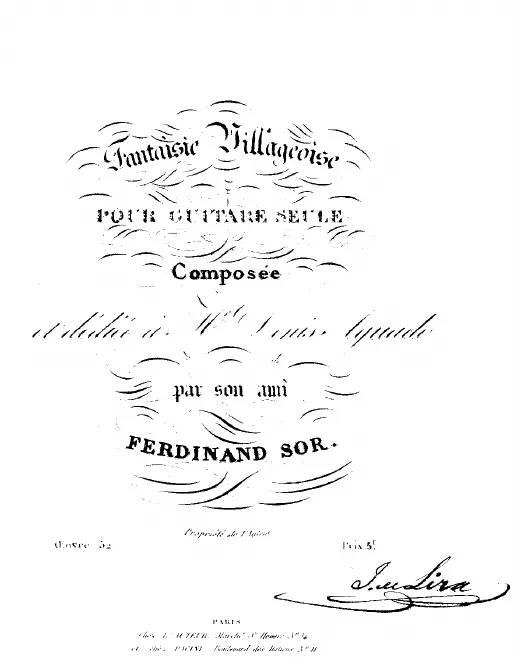 Fantaisie Villageoise
POUR GUITARE SEULE
Composée
et dédiée à Mr. Denis Aguado
par son ami
FERDINAND SOR.
Propriété de l'Auteur
Œuvre 52 Prix 5f
J. de Lira
PARIS
chez L'AUTEUR, Marché St. Honoré No. 34
et chez PACINI, Boulevard des Italiens No. 11